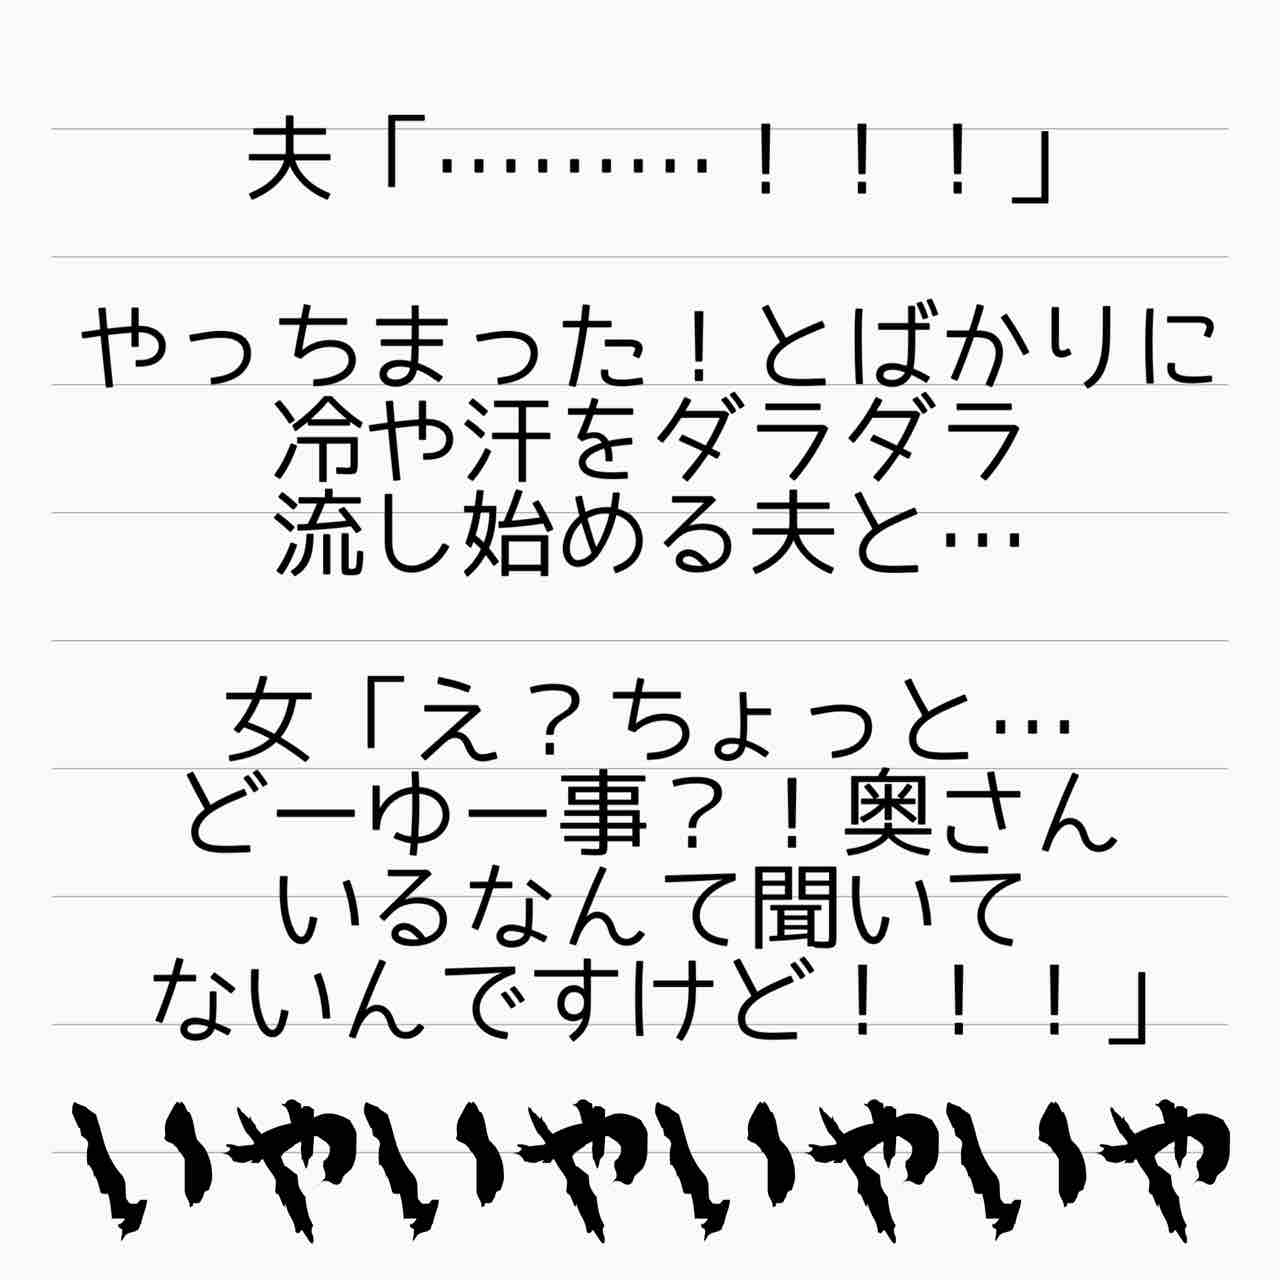 夫「………！！！」
やっちまった！とばかりに
冷や汗をダラダラ
流し始める夫と…
女「え？ちょっと…
どーゆー事？！奥さん
いるなんて聞いて
ないんですけど！！！」
いやいやいやいや